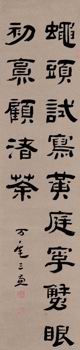 蠅頭試寫黃庭字蟹眼
初烹顧渚茶